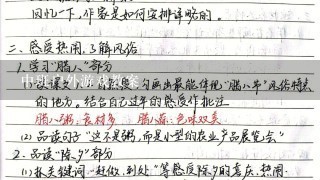 回忆一下,作家是如何安排详略的。
二、感受热闹,了解风俗
1. 学习"腊八"部分
中班户外游戏教案
句画出最能体现"腊八节"风俗特点
的地方。结合自己过年的感受作批注
腊八粥:食材多 腊八蒜:色味双美
(2)品读句子"这不是粥,而是小型的农业产品展览会"
2. 品读"除夕"部分
(1)抓关键词"赶做、到处"等感受除夕的喜庆、热闹